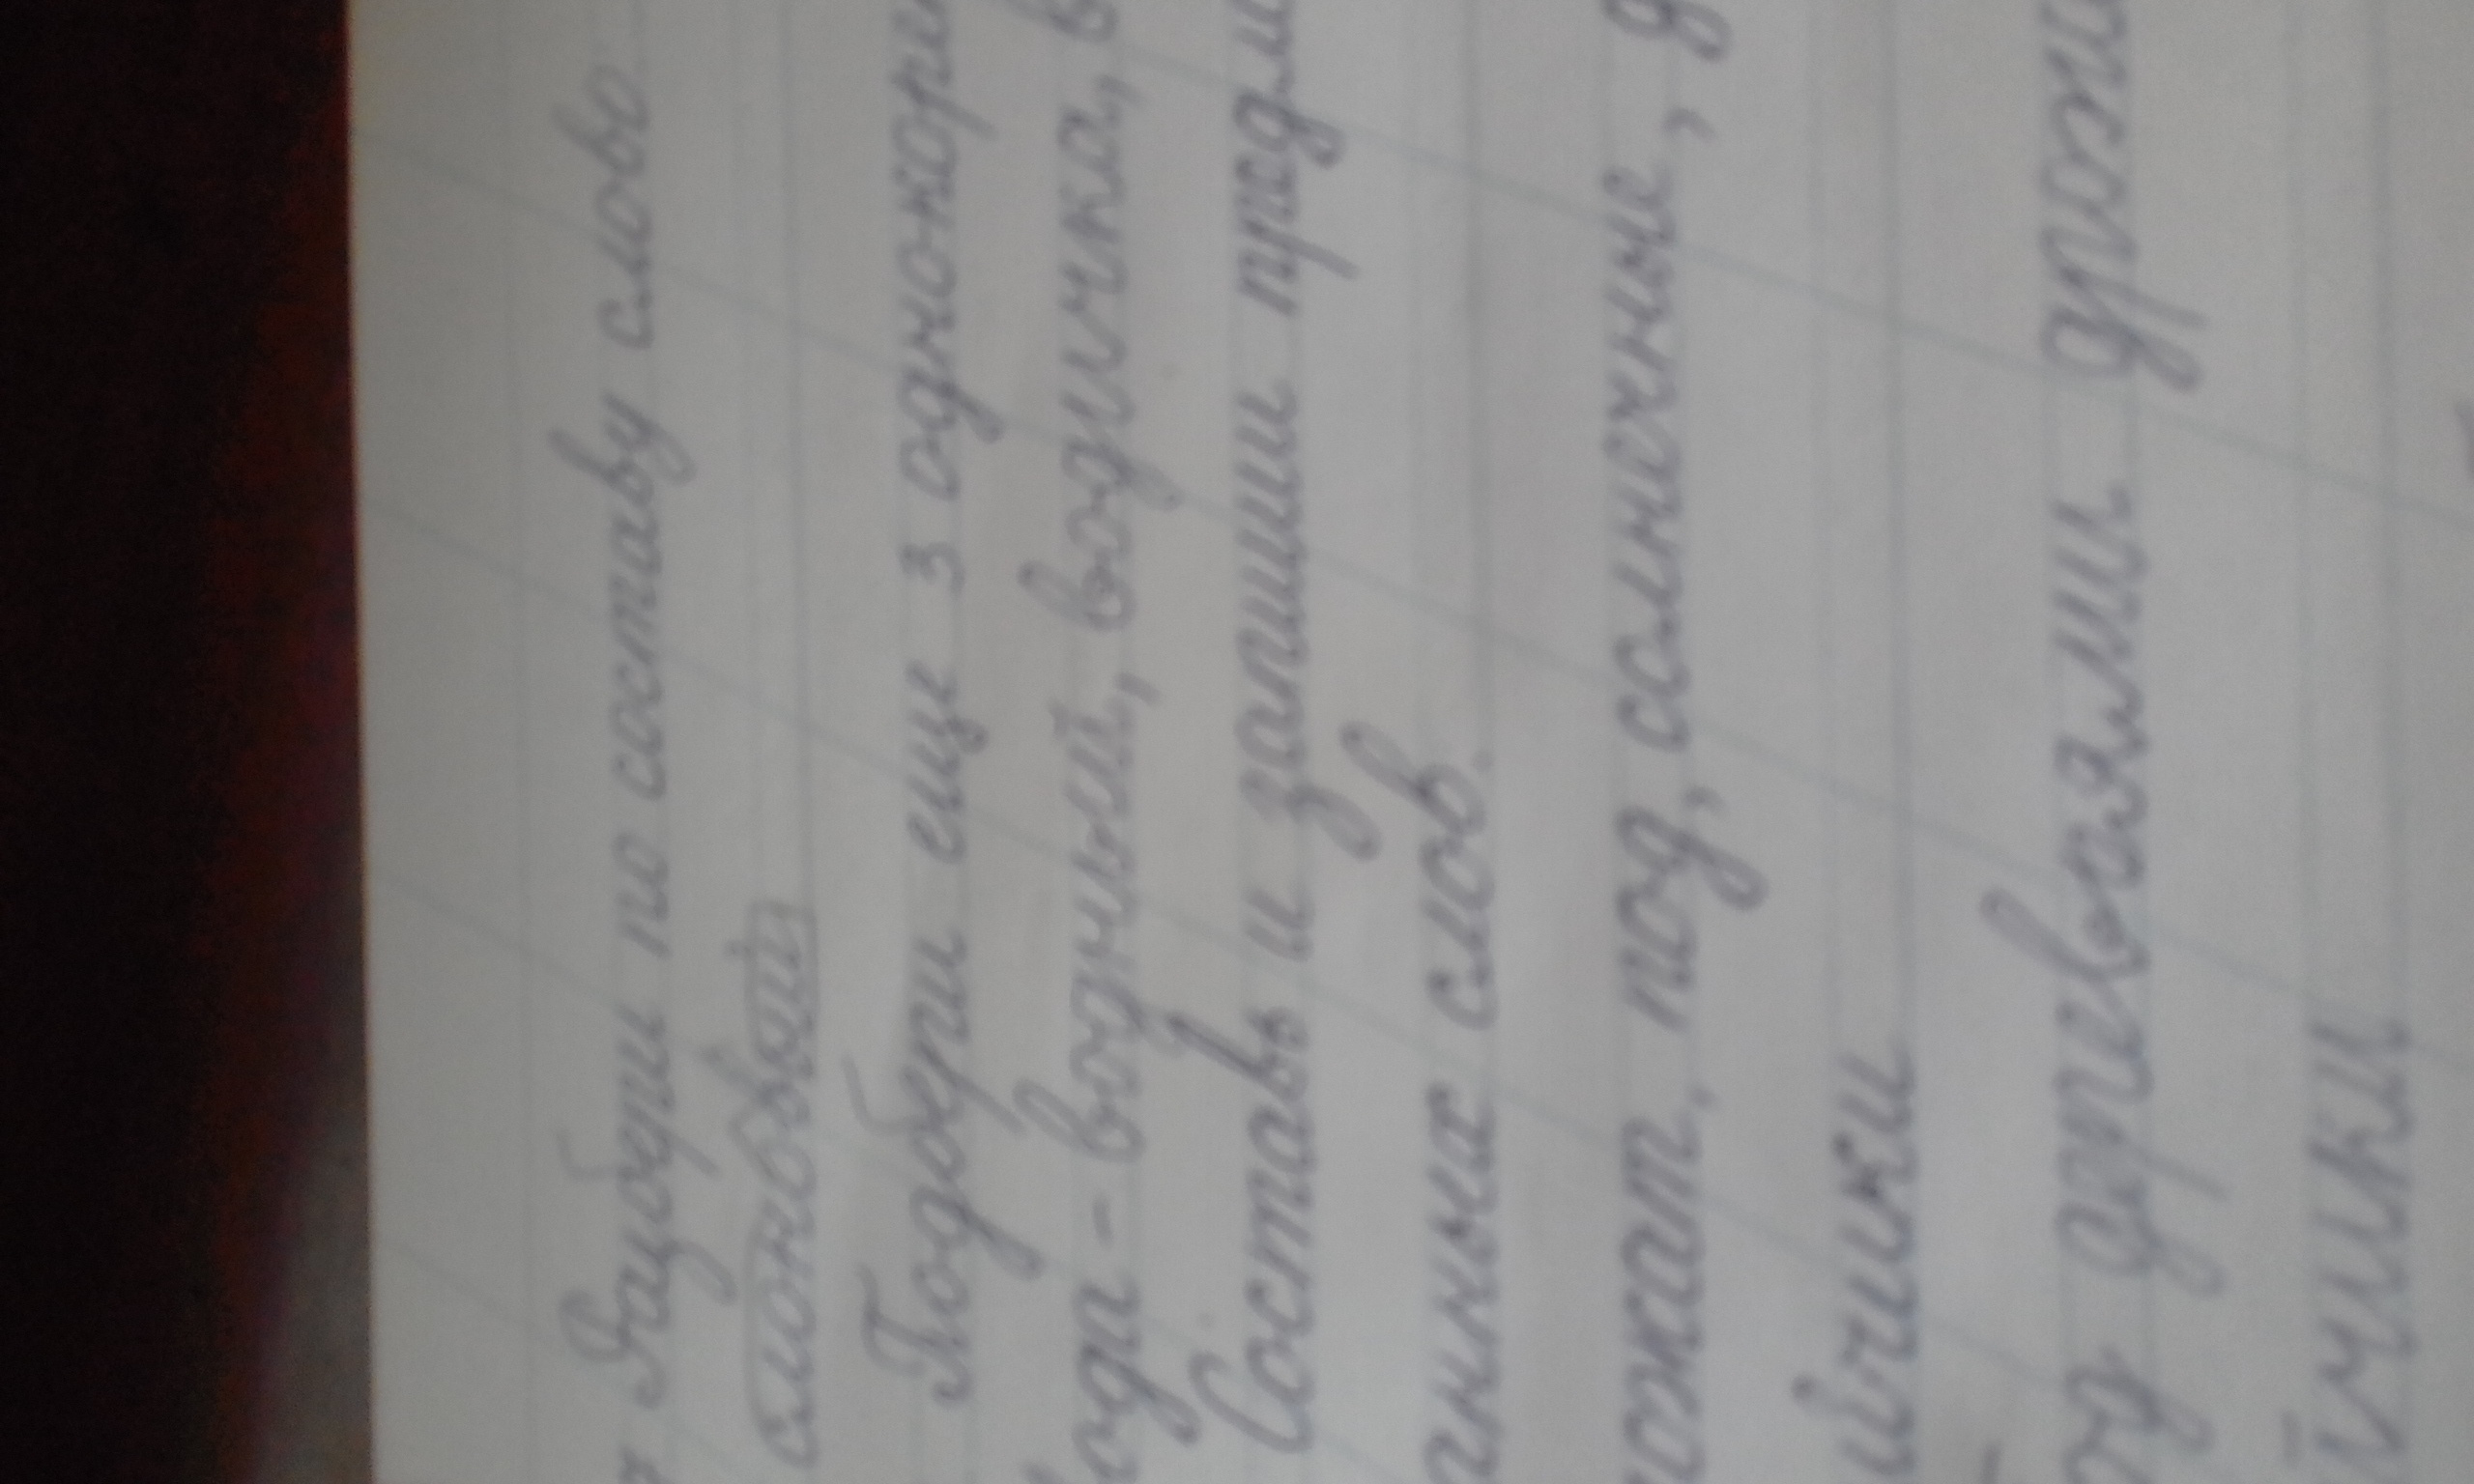 Разбери по составу слово
слоновый
Подбери еще 3 однокорн
ода - водный, водичка, в
Составь и запиши предл
анных слов.
ожат, под, солнечные, д
йчики
од деревьями дрожи
йчики